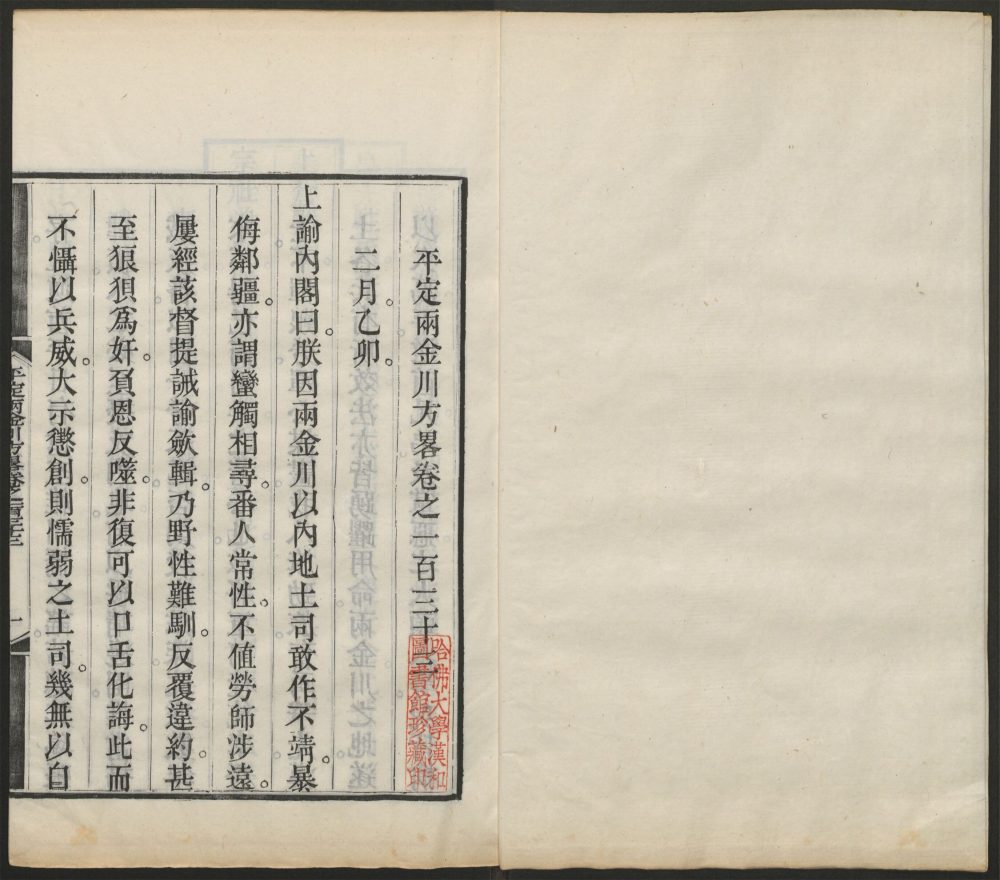 平定兩金川方畧卷之一百三十三
二月乙卯。
上諭內閣曰。朕因兩金川以內地土司敢作不靖。暴
侮鄰疆。亦謂蠻觸相尋。番人常性。不值勞師涉遠。
屢經該督提誡諭歛輯。乃野性難馴。反覆違約。甚
至狼狽爲奸。負恩反噬。非復可以口舌化誨。此而
不懾以兵威。大示懲創。則懦弱之土司。幾無以自
平定兩金川方畧卷之一百三十三
一
哈佛大學漢和
圖書館珍藏印